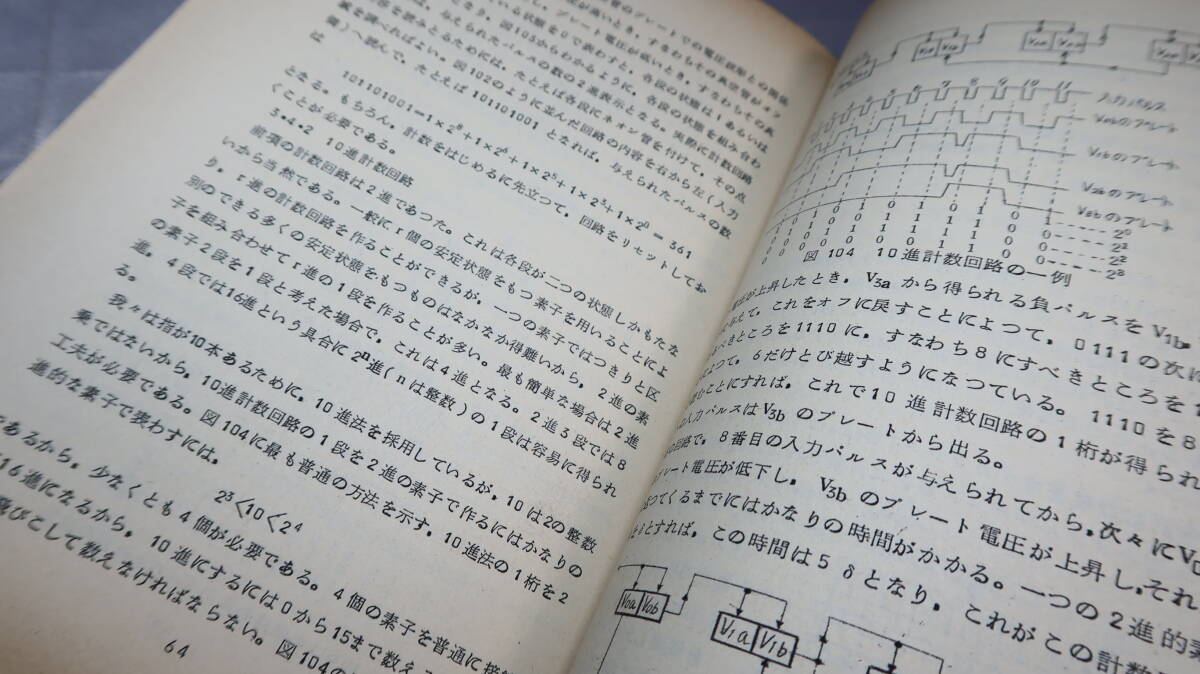 管のプレートでの電圧波形との関係
プレート電圧が低いとき,すなわちその真
いる状態を0で表わすと,各段の状態は1あるいは
図103からわかるように,各段の状態を組み合わ
与えられたパルスの数の2進表示となる。実際に計数回路
容を読みとるためには,たとえば各段にネオン管を付けて,その点
を調べればよい。図102のように並んだ回路の内容を右から左(入力
)へ読んで,たとえば101101001となれば,与えられたパルスの数
は
101101001=1×2⁸+1×2⁶+1×2⁵+1×2³+1×2⁰=361
となる。もちろん,計数をはじめるに先立つて,回路をリセットしてお
くことが必要である。
3・4・2 10進計数回路
前項の計数回路は2進であつた。これは各段が二つの状態しかもたな
いから当然である。一般にr個の安定状態をもつ素子を用いることによ
り,r進の計数回路を作ることができるが,一つの素子ではつきりと区
別のできる多くの安定状態をもつものはなかなか得難いから,2進の素
子を組み合わせてr進の1段を作ることが多い。最も簡単な場合は2進
の素子2段を1段と考えた場合で,これは4進となる。2進3段では8
進,4段では16進という具合に2ⁿ進(nは整数)の1段は容易に得られ
る。
我々は指が10本あるために,10進法を採用しているが,10は2の整数
乗ではないから,10進計数回路の1段を2進の素子で作るにはかなりの
工夫が必要である。図104に最も普通の方法を示す。10進法の1桁を2
進的な素子で表わすには,
2³<10<2⁴
であるから,少なくとも4個が必要である。4個の素子を普通に接続
16進になるから,10進にするには0から15まで数え
飛びこして数えなければならない。図104の
64
7 8 9 10 11
入力パルス
V0bのプレート
V1bのプレート
V2bのプレート
V3bのプレート
図104 10進計数回路の一例
電圧が上昇したとき,V3aから得られる負パルスをV1b,
与えて,これをオフに戻すことによつて,0111の次に
べきところを1110に,すなわち8にすべきところを
によつて,6だけとび越すようになつている。1110を8
むことにすれば,これで10進計数回路の1桁が得られ
の入力パルスはV3bのプレートから出る。
回路で,8番目の入力パルスが与えられてから,次々にV0
プレート電圧が低下し,V3bのプレート電圧が上昇し,それ
つてくるまでにはかなりの時間がかかる。一つの2進的素
δとすれば,この時間は5δとなり,これがこの計数
V0a V0b
V1a V1b